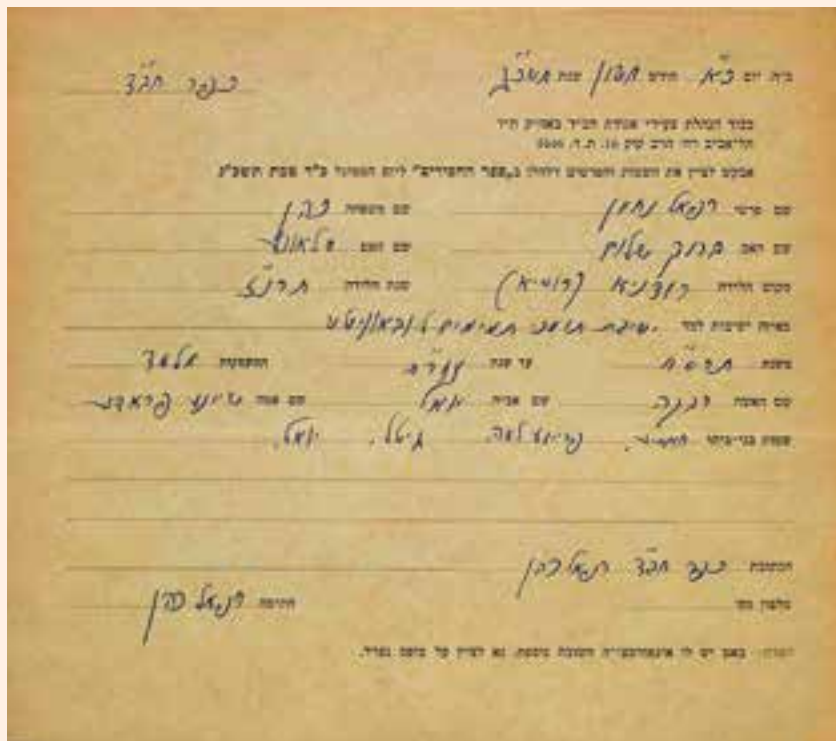 ב״ה יום כ״א חודש חשון שנת תשכ״ג כפר חב״ד
לכבוד הנהלת צעירי אגודת חב״ד באה״ק ת״ו
תל־אביב רח׳ הרב קוק 16, ת.ד.
אבקש לציין את השמות והפרטים דלהלן ב„ספר החסידים" ליום הסגולה כ״ד טבת תשכ״ג
שם פרטי רפאל נחמן שם משפחה כהן
שם האב ברוך שלום שם האם
מקום הלידה רודניא (רוסיא) שנת הלידה
באיזה ישיבות למד ישיבת תומכי תמימים ליובאוויטש
משנת עד שנת התעסקות
שם האשה רבקה שם אביה שם אמה
שמות בני־ביתו גיטל,
הכתובת כפר חב״ד רפאל כהן
טלפון מס׳ חתימה רפאל כהן
הערה: באם יש לו אינפורמציה חשובה נוספת, נא לציין על טופס נפרד.